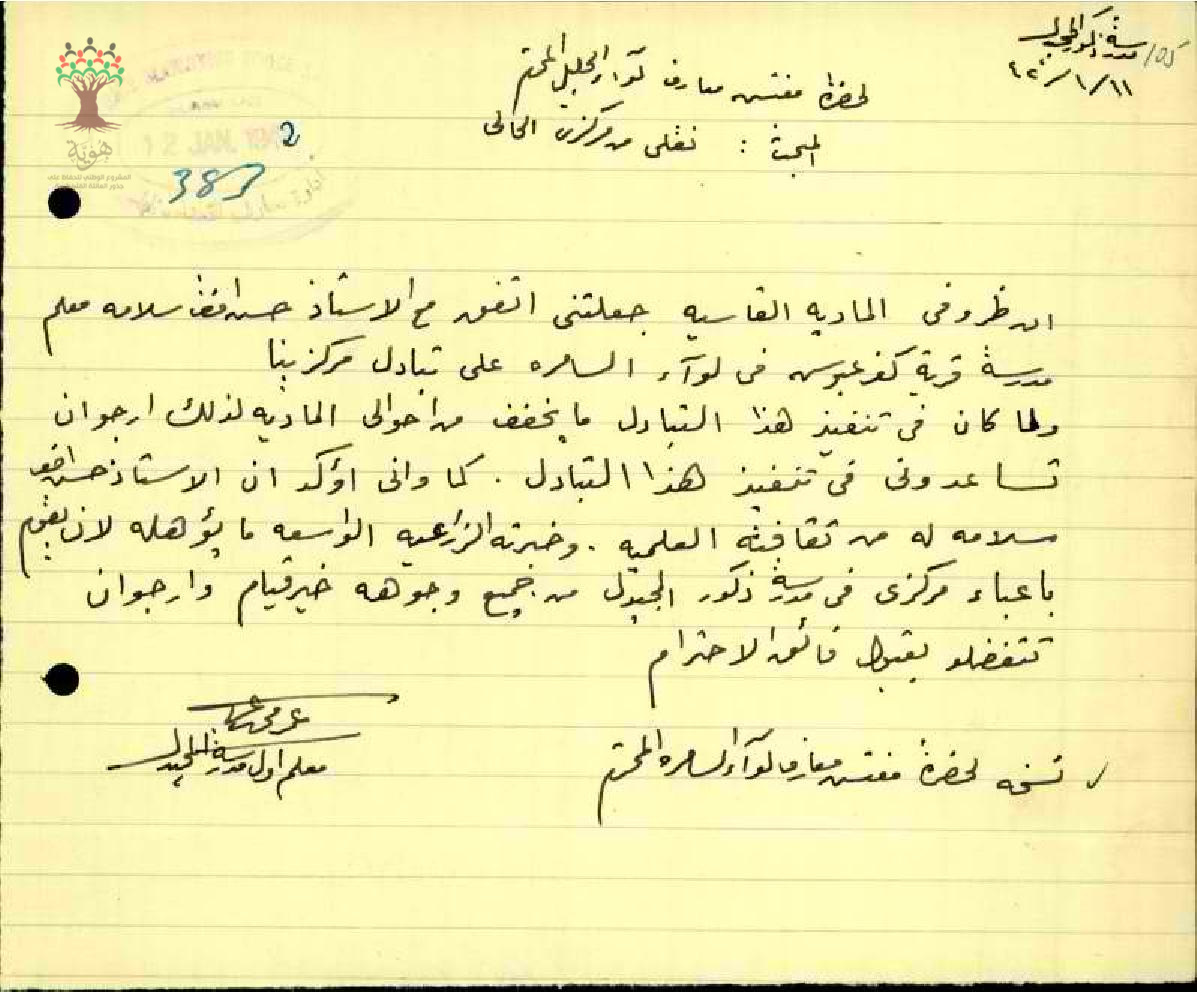 مدرسة ذكور المجيدل
١١/١/٤٢
لحضرة مفتش معارف لوآء الجليل المحترم
المبحث : نقلي من مركزي الحالي
12 JAN. 194
2
383
هوية
المشروع الوطني للحفاظ على
جذور العائلة الفلسطينية
ان ظروفي الماديه القاسيه جعلتني اتفق مع الاستاذ حسن افندي سلامه معلم
مدرسة قرية كفر عبوش في لوآء السامره على تبادل مركزينا
ولما كان في تنفيذ هذا التبادل ما يخفف من احوالي الماديه لذلك ارجو ان
تساعدوني في تنفيذ هذا التبادل . كما واني اؤكد ان الاستاذ حسن افندي
سلامه له من ثقافته العلميه . وخبرته الزراعيه الواسعه ما يؤهله لان يقوم
باعباء مركزي في مدرسة ذكور المجيدل من جميع وجوهه خير قيام وارجو ان
تتفضلو بقبول فائق الاحترام
معلم اول مدرسة المجيدل
نسخه لحضرة مفتش معارف لوآء السامره المحترم